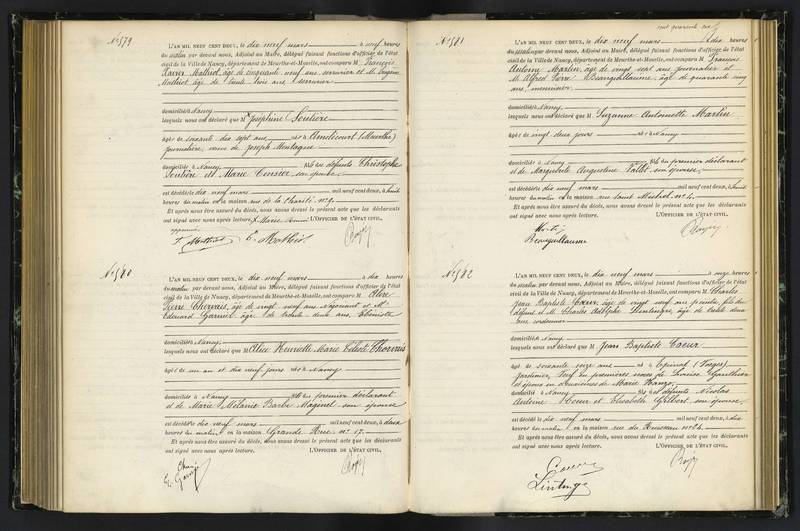 N° 579
L'AN MIL NEUF CENT DEUX, le dix neuf mars à neuf heures
du matin par devant nous, Adjoint au Maire, délégué faisant fonctions d'officier de l'état
civil de la Ville de Nancy, département de Meurthe-et-Moselle, ont comparu M François
Xavier Mathiot, âgé de cinquante neuf ans, serrurier et M. Eugène
Mathiot âgé de trente trois ans, serrurier
domiciliés à Nancy
lesquels nous ont déclaré que M Joséphine
âgée de soixante dix sept ans née à Amelécourt (Meurthe)
journalière, veuve de Joseph Montagne
domiciliée à Nancy fille de défunts Christophe
et Marie son épouse
est décédée dix neuf mars mil neuf cent deux, à huit
heures du matin en la maison rue de la Charité n° 9.
Et après nous être assuré du décès, nous avons dressé le présent acte que les déclarants
ont signé avec nous après lecture. Marie L'OFFICIER DE L'ÉTAT CIVIL,
approuvé
F. Mathiot E. Mathiot
N° 580
L'AN MIL NEUF CENT DEUX, le dix neuf mars à dix heures
du matin, par devant nous, Adjoint au Maire, délégué faisant fonctions d'officier de l'état
civil de la Ville de Nancy, département de Meurthe-et-Moselle, ont comparu M
Pierre âgé de vingt neuf ans, négociant et M.
Edouard Garnier âgé de trente deux ans, ébéniste
domiciliés à Nancy
lesquels nous ont déclaré que M Alice Henriette Marie
âgée de un an et dix neuf jours née à Nancy
domiciliée à Nancy fille du premier déclarant
et de Marie Mélanie Barbe Maginel son épouse
est décédée dix neuf mars mil neuf cent deux, à deux
heures du matin en la maison Grande Rue n° 17.
Et après nous être assuré du décès, nous avons dressé le présent acte que les déclarants
ont signé avec nous après lecture. L'OFFICIER DE L'ÉTAT CIVIL,
E. Garnier
N° 581
L'AN MIL NEUF CENT DEUX, le dix neuf mars à dix heures
du matin par devant nous, Adjoint au Maire, délégué faisant fonctions d'officier de l'état
civil de la Ville de Nancy, département de Meurthe-et-Moselle, ont comparu M François
Antoine Martin, âgé de vingt sept ans journalier et
M. Alfred Pierre Beauguillaume, âgé de quarante cinq
ans, menuisier
domiciliés à Nancy
lesquels nous ont déclaré que M Suzanne Antoinette Martin
âgée de vingt deux jours née à Nancy
domiciliée à Nancy fille du premier déclarant
et de Marguerite Augustine son épouse,
est décédée dix neuf mars mil neuf cent deux, à huit
heures du matin en la maison rue Saint Michel n° 4.
Et après nous être assuré du décès, nous avons dressé le présent acte que les déclarants
ont signé avec nous après lecture. L'OFFICIER DE L'ÉTAT CIVIL,
Martin
Beauguillaume
N° 582
L'AN MIL NEUF CENT DEUX, le dix neuf mars à onze heures
du matin, par devant nous, Adjoint au Maire, délégué faisant fonctions d'officier de l'état
civil de la Ville de Nancy, département de Meurthe-et-Moselle, ont comparu M Charles
Jean Baptiste Coeur, âgé de vingt neuf ans peintre, fils du
défunt et M. Charles Adolphe âgé de trente deux
ans cordonnier
domiciliés à Nancy
lesquels nous ont déclaré que M Jean Baptiste Coeur
âgé de soixante onze ans né à Epinal (Vosges)
jardinier, veuf en premières noces de Louise
et époux en secondes de Marie
domicilié à Nancy fils de défunts Nicolas
Antoine Coeur et Elisabeth Gilbert son épouse,
est décédé le dix neuf mars mil neuf cent deux, à dix
heures du matin en la maison rue du Ruisseau n° 24.
Et après nous être assuré du décès, nous avons dressé le présent acte que les déclarants
ont signé avec nous après lecture. L'OFFICIER DE L'ÉTAT CIVIL,
Coeur